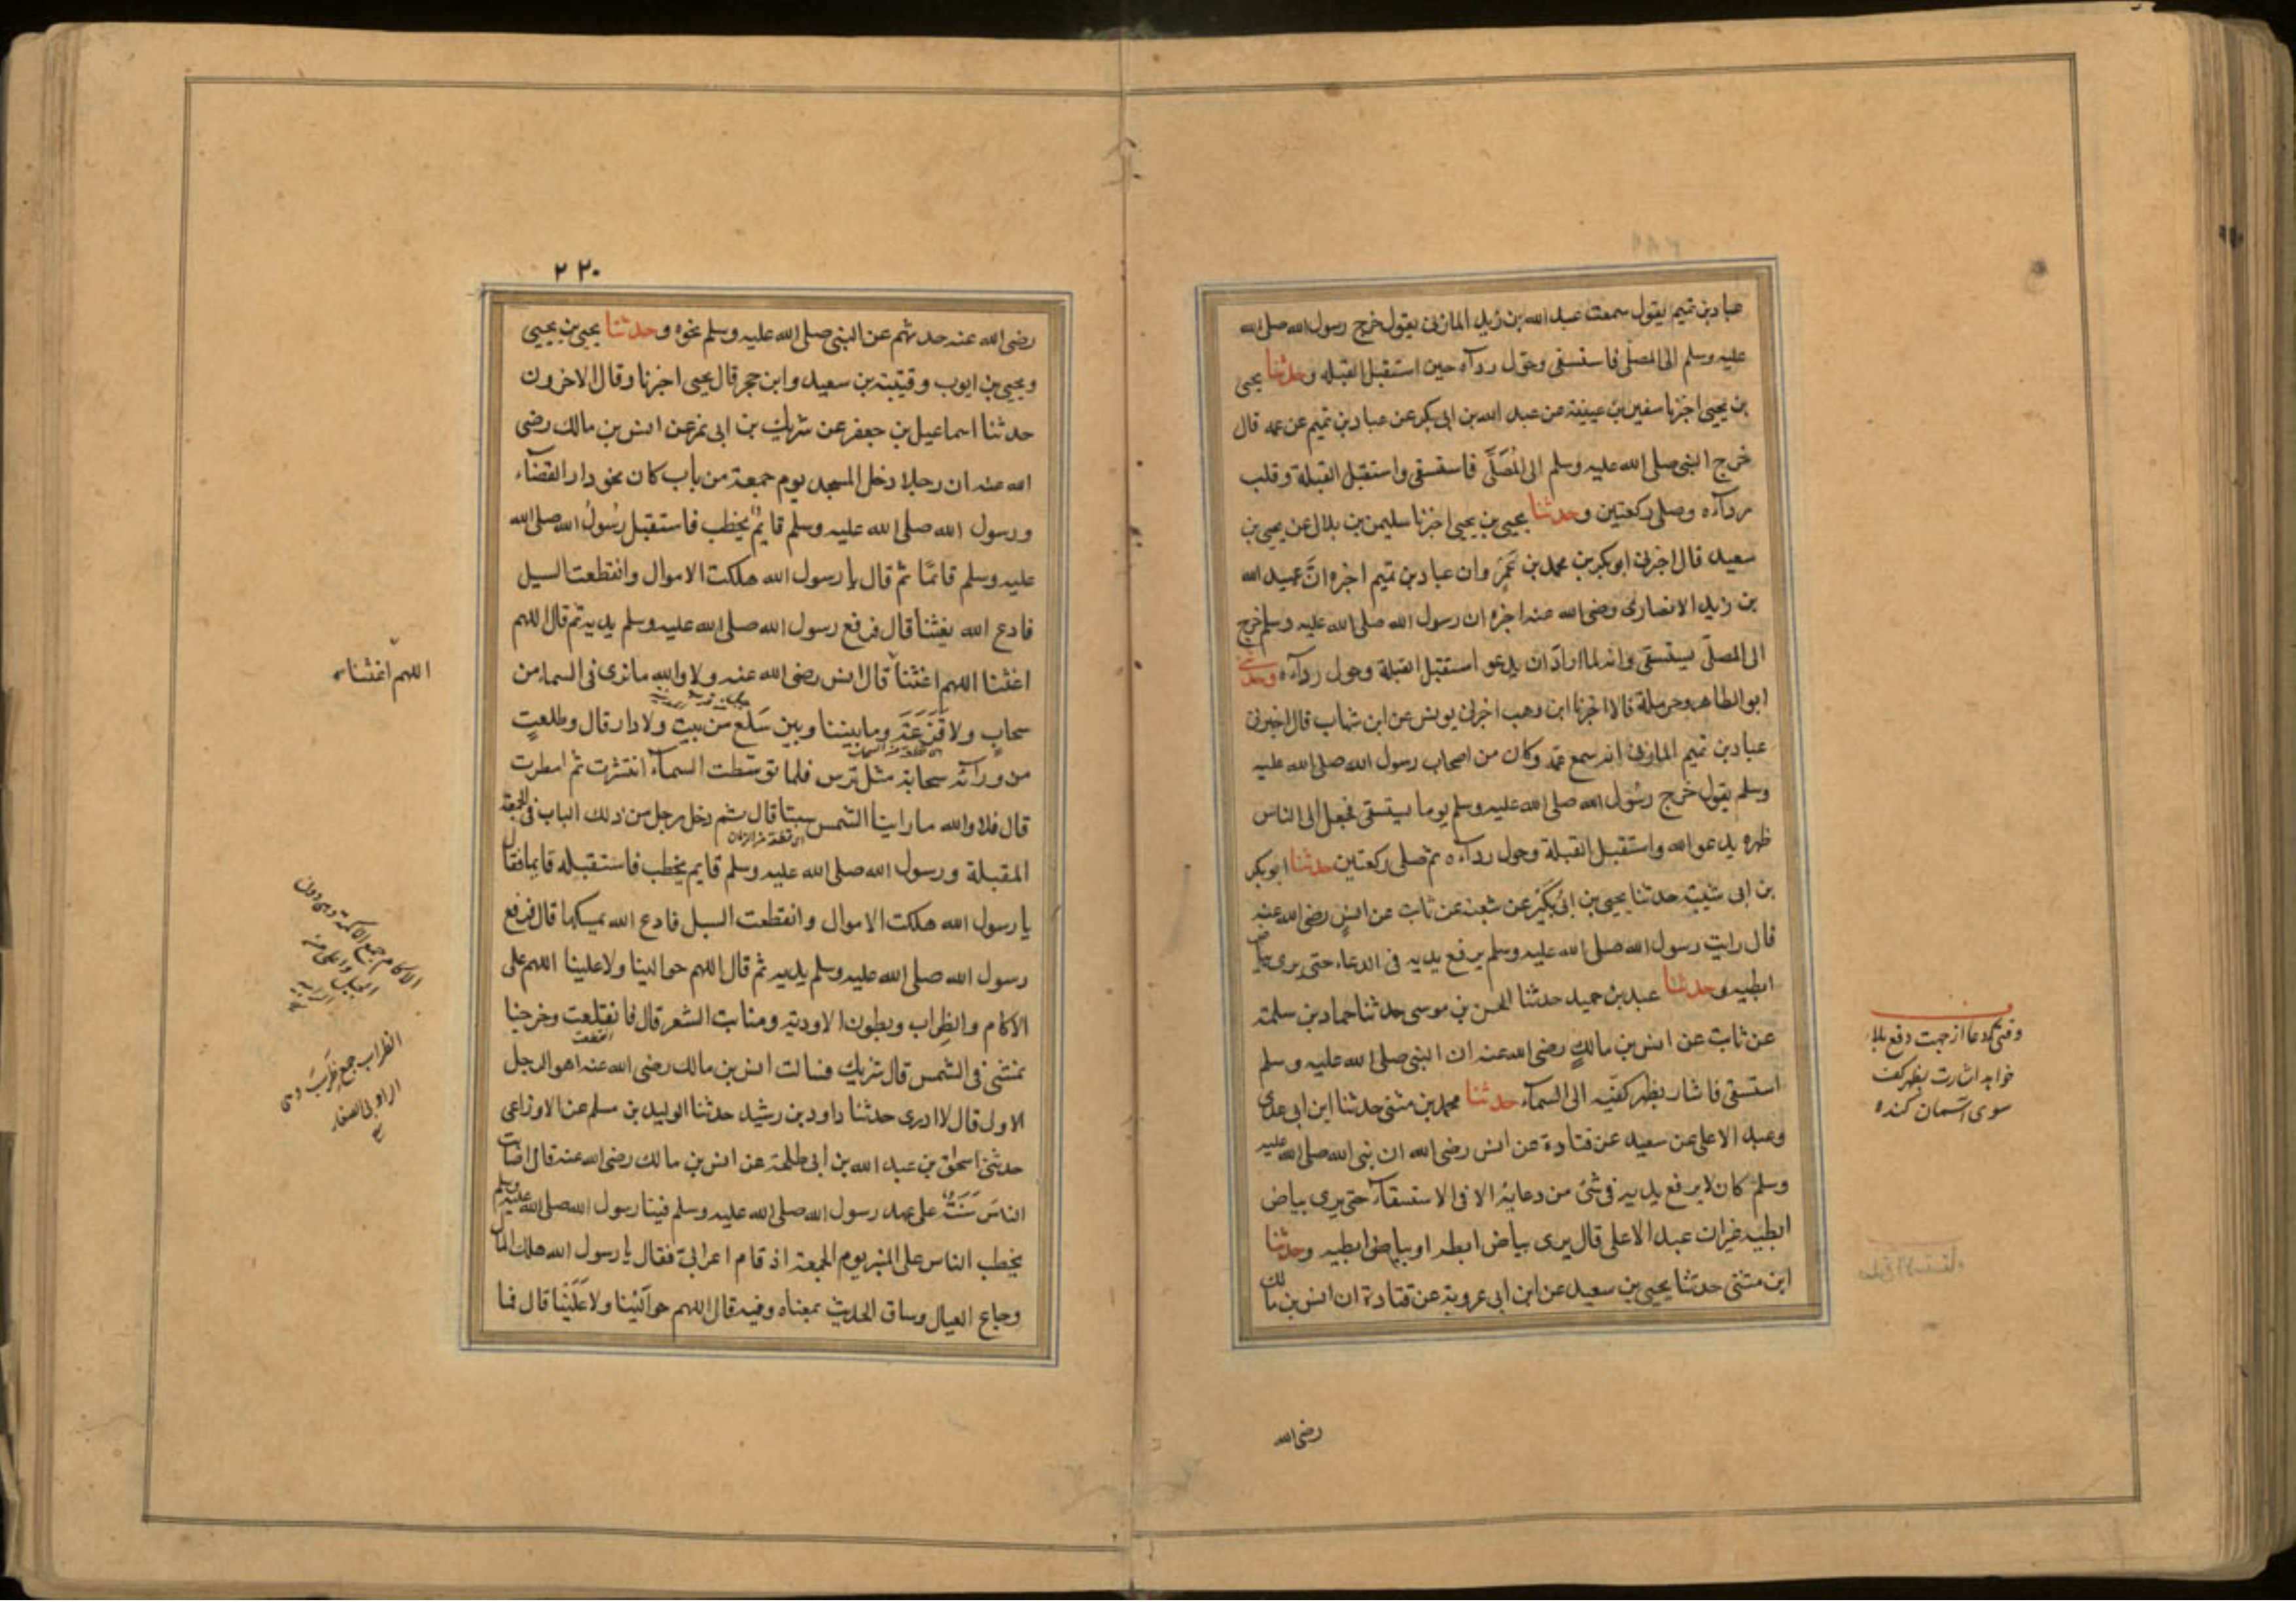 عبادبن تميم يقول سمعت عبد الله بن زيد المازنى يقول خرج رسول الله صلى الله
عليه وسلم الى المصلى فاستسقى وحول ردآه حين استقبل القبله وحدثنا يحيى
بن يحيى اخبرنا سفين بن عيينة عن عبد الله بن ابى بكر عن عبادبن تميم عن عمه قال
خرج النبى صلى الله عليه وسلم الى المُصَلَّى فاستسقى واستقبل القبلة وقلب
ردآءه وصلى ركعتين وحدثنا يحيى بن يحيى اخبرنا سليمن بن بلال عن يحيى بن
سعيد قال اخبرنى ابو بكر بن محمد بن عَمرٍ وان عبادبن تميم اخبره انَّ عبد الله
بن زيد الانصارى رضى الله عنه اخبره ان رسول الله صلى الله عليه وسلم خرج
الى المصلّى يستسقى وانه لما اراد ان يدعو استقبل القبلة وحول ردآءه وحدثنى
ابو الطاهر وحرملة قالا اخبرنا ابن وهب اخبرنى يونس عن ابن شهاب قال اخبرنى
عبادبن تميم المازنى انه سمع عمه وكان من اصحاب رسول الله صلى الله عليه
وسلم يقول خرج رسُول الله صلى الله عليه وسلم يوما يستسقى فجعل الى الناس
ظهره يدعو الله واستقبل القبلة وحول ردآءه ثم صلى ركعتين حدثنا ابو بكر
بن ابى شيبة حدثنا يحيى بن ابى بُكَيْر عن شعبة عن ثابت عن انسٍ رضى الله عنه
قال رايت رسول الله صلى الله عليه وسلم يرفع يديه فى الدعاء حتى يرى بياض
ابطيه وحدثنا عبد بن حميد حدثنا الحسن بن موسى حدثنا حماد بن سلمة
عن ثابت عن انس بن مالكٍ رضى الله عنه ان النبى صلى الله عليه وسلم
استسقى فاشار بظهر كفيّه الى السمآء حدثنا محمد بن مثنى حدثنا ابن ابى عدى
وعبد الاعلى عن سعيد عن قتادة عن انس رضى الله ان نبى الله صلى الله عليه
وسلم كان لا يرفع يديه فى شئ من دعايه الا فى الاستسقآء حتى يرى بياض
ابطيه غير ان عبد الاعلى قال يرى بياض ابطه او بياض ابطيه وحدثنا
ابن مثنى حدثنا يحيى بن سعيد عن ابن ابى عروبة عن قتادة ان انس بن مالك
رضى الله
وقتيكه دعا از جهت دفع بلاء
خواهد اشارت بظهر كف
سوى اسمان كنده
٢٢٠
رضى الله عنه حدثهم عن النبى صلى الله عليه وسلم نحوه وحدثنا يحيى بن يحيى
ويحيى بن ايوب وقتيبة بن سعيد وابن حجر قال يحيى اخبرنا وقال الاخرون
حدثنا اسماعيل بن جعفر عن شريك بن ابى نمر عن انس بن مالك رضى
الله عنه ان رجلا دخل المسجد يوم جمعة من باب كان نحو دار القضآء
ورسول الله صلى الله عليه وسلم قايمٌ يخطب فاستقبل رسُولَ الله صلى الله
عليه وسلم قائمًا ثم قال يا رسول الله هلكت الاموال وانقطعت السبل
فادع الله يغثنا قال فرفع رسول الله صلى الله عليه وسلم يديه ثم قال اللهم
اغثنا اللهم اغثنا قال انس رضى الله عنه ولا والله ما نرى فى السماء من
سحابٍ ولا قَزَعَةٍ وما بيننا وبين سَلعٍ من بيت ولا دار قال وطلعت
من ورآئه سحابة مثل ترس فلما توسّطت السمآء انتشرت ثم امطرت
قال فلا والله ما راينا الشمس سبتا قال ثم دخل رجل من ذلك الباب فى الجمعة
اى قطعة من الزمان
المقبلة ورسول الله صلى الله عليه وسلم قايم يخطب فاستقبله قايما فقال
يا رسول الله هلكت الاموال وانقطعت السبل فادع الله يمسكها قال فرفع
رسول الله صلى الله عليه وسلم يديه ثم قال اللهم حوالينا ولا علينا اللهم على
الاكام والظراب وبطون الاودية ومنابت الشجر قال فانقلعت وخرجنا
انقطعت
نمشى فى الشمس قال شريك فسالت انس بن مالك رضى الله عنه اهو الرجل
الاول قال لا ادرى حدثنا داود بن رشيد حدثنا الوليد بن مسلم عن الاوزاعى
حدثنى اسحاق بن عبد الله بن ابى طلحة عن انس بن مالك رضى الله عنه قال اصابت
الناسَ سَنَةٌ على عهد رسول الله صلى الله عليه وسلم فبينا رسول الله صلى الله عليه وسلم
يخطب الناس على المنبر يوم الجمعة اذ قام اعرابىّ فقال يا رسول الله هلك المال
وجاع العيال وساق الحديث بمعناه وفيه قال اللهم حوالَيْنا ولا عَلَيْنا قال فما
اللهم اغثنا
الاكام جمع الاكمة وهى دون
الجبل واعلى من
الرابية
الظراب جمع ظَرِبٍ وهى
الروابى الصغار